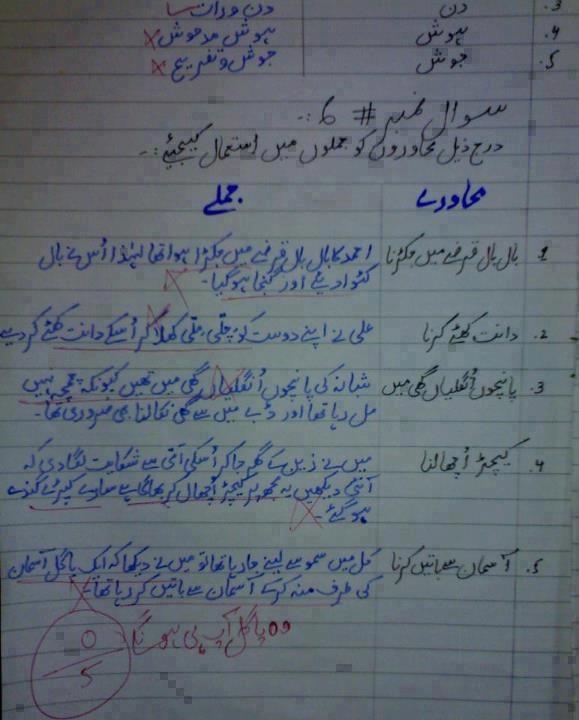 3. دن دن و رات
4. ہوش ہوش مدہوش
5. جوش جوش و تفریح
سوال نمبر # 6 :-
درج ذیل محاوروں کو جملوں میں استعمال کیجیئے :-
محاورے جملے
1. بال بال قرضے میں جکڑنا احمد کا بال بال قرضے میں جکڑا ہوا تھا لہٰذا اُس نے بال
کٹوا دیئے اور گنجا ہو گیا۔
2. دانت کھٹے کرنا علی نے اپنے دوست کو کھلا کر اُسکے دانت کھٹے کر دیے
3. پانچوں اُنگلیاں گھی میں شبانہ کی پانچوں اُنگلیاں گھی میں تھیں کیونکہ چمچی نہیں
مل رہا تھا اور ڈبے میں سے گھی نکالنا بھی ضروری تھا۔
4. کیچڑ اُچھالنا میں نے زین کے گھر جا کر اُسکی آنٹی سے شکایت لگا دی کہ
آنٹی دیکھیں یہ مجھ پر کیچڑ اُچھال کر بھاگا ہے سارے کپڑے گندے
ہو گئے۔
5. آسمان سے باتیں کرنا کل میں سموسے لینے جا رہا تھا تو میں نے دیکھا کہ ایک پاگل آسمان
کی طرف منہ کر کے آسمان سے باتیں کر رہا تھا۔
وہ پاگل آپ ہی ہونگے
0
5